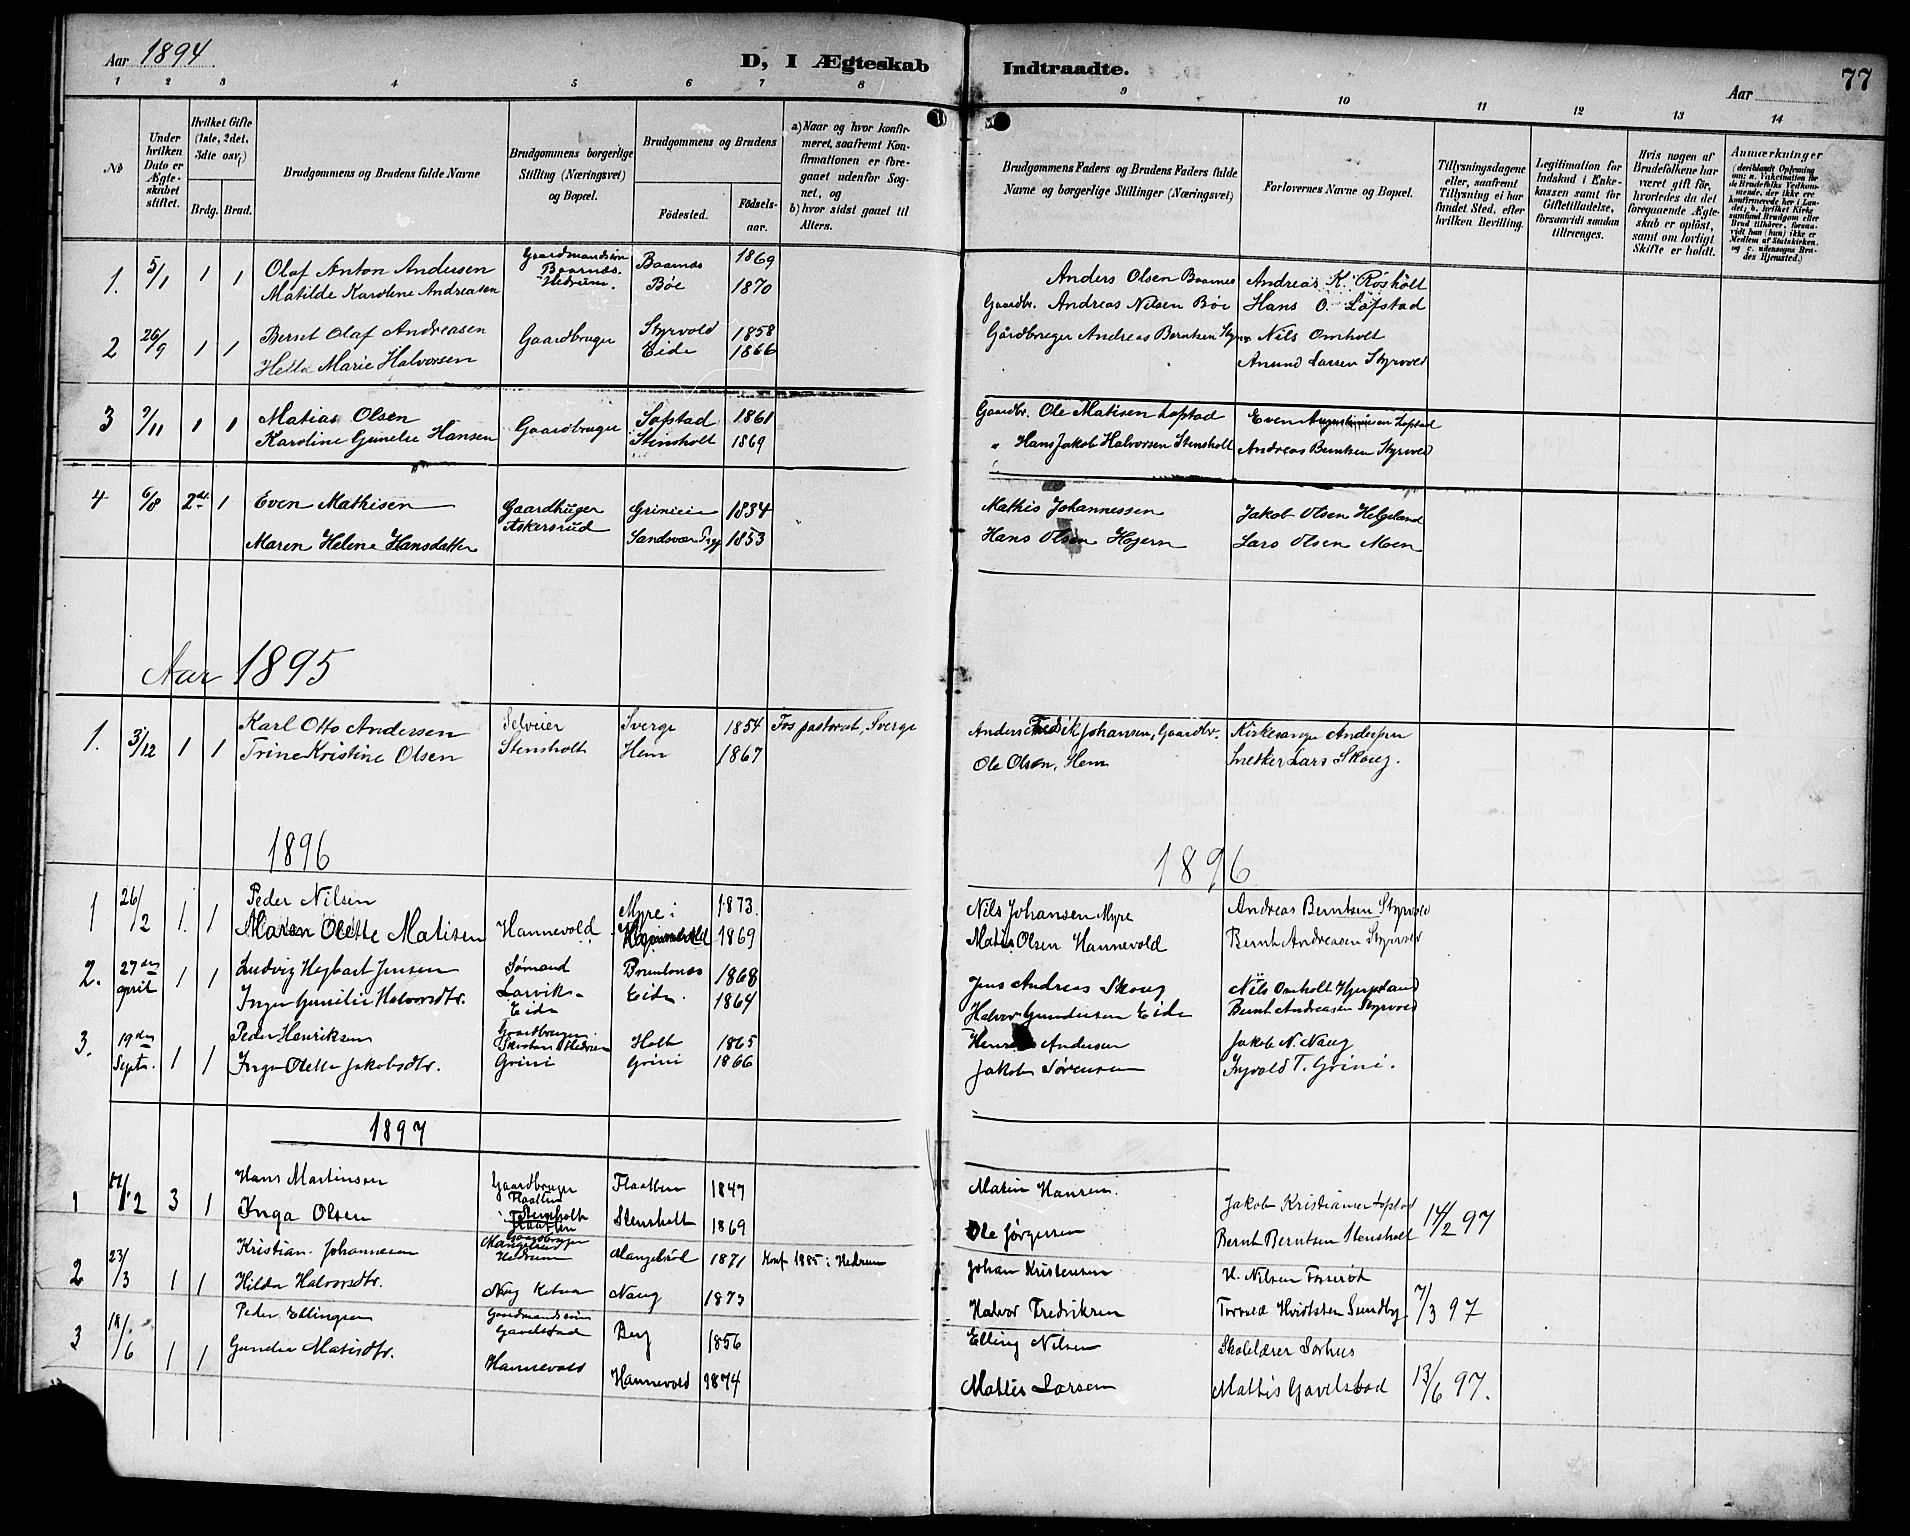 Aar 1894.
D, I Ægteskab Indtraadte.
77
Aar
1 2 3 4 5 6 7 8 9 10 11 12 13 14
No
Under hvilken Dato er Ægteskabet stiftet.
Hvilket Gifte (1ste, 2det, 3die osv.)
Brdg. Brud.
Brudgommens og Brudens fulde Navne
Brudgommens borgerlige Stilling (Næringsvei) og Bopæl.
Brudgommens og Brudens
Fødested.
Fødselsaar.
a) Naar og hvor konfirmeret, saafremt Konfirmationen er foregaaet udenfor Sognet, og
b) hvor sidst gaaet til Alters.
Brudgommens Faders og Brudens Faders fulde Navne og borgerlige Stillinger (Næringsvei)
Forlovernes Navne og Bopæl.
Tillysningsdagene eller, saafremt Tillysning ei har fundet Sted, efter hvilken Bevilling.
Legitimation for Indskud i Enkekassen samt for Giftetilladelse, forsaavidt saadan tiltrænges.
Hvis nogen af Brudefolkene har været gift før, hvorledes da det foregaaende Ægteskab er opløst, samt om lovligt Skifte er holdt.
Anmærkninger
1. 5/1 1 1 Olaf Anton Andersen Gaardmandssøn Baarnæs Hedrum. Baarnæs 1869 Anders Olsen Baarnes Andreas K. Røsholt
Matilde Karoline Andreasen Bøe 1870 Gaardbr. Andreas Nilsen Bøe Hans O. Løfstad
2 26/9 1 1 Bernt Olaf Andreasen Gaardbruger Styrvold 1858 Gårdbruger Andreas Berntsen Nils Omholt
Helta Marie Halvorsen Eide 1866 Anund Larsen Styrvold
3 9/11 1 1 Matias Olsen Gaardbruger Løfstad 1861 Gaardbr. Ole Matisen Løfstad Even Løfstad
Karoline Gunelie Hansen Stensholt 1869 " Hans Jakob Halvorsen Stensholt Andreas Berntsen Styrvold
4 6/8 2det 1 Even Mathisen Gaardbuger Askersrud 1834 Mathis Johannessen Jakob Olsen Helgeland
Maren Helene Hansdatter Sandsvær 1853 Hans Olsen Lars Olsen Moen
Aar 1895
1. 3/12 1 1 Karl Otto Andersen Selveier Sverge 1854 Fos pastorat, Sverge Anders Fredrik Johansen, Gaardbr. Kirkesanger Andersen
Trine Kristine Olsen Stensholt Hem 1867 Ole Olsen, Hem Snedker Lars Skoug.
1896 1896
1 26/2 1. 1 Peder Nilsen Myre i 1873. Nils Johansen Myre Andreas Berntsen Styrvold
Maren Olette Matisen Hannevold 1869 Matis Olsen Hannevold Bernt Andreasen Styrvold
2. 27de april 1 1 Ludvig Hegbart Jensen Sømand Larvik 1868 Jens Andreas Skoug Nils Omholt
Inger Gunilie Halvorsdtr. Eide Eide. 1864 Halvor Gundersen Eide Bernt Andreasen Styrvold
3. 19de Septr. 1 1 Peder Henriksen Gaardbruger Hedrum Holt 1865 Andersen Jakob N. Naug
Inger Olette Jakobsdtr. Grini Grini 1866 Jakob Sørensen Ingvald T. Grini.
1897
1 /2 3 1 Hans Martinsen Gaardbruger Flaatten Flaatten 1847 Martin Hansen. Jakob Kristiansen Løpstad
Inga Olsen Stensholt Stensholt 1869 Ole Jørgensen Bernt Berntsen Stensholt 14/2 97
2 23/3 1 1 Kristian Johannesen Gaardbruger Hedrum Mangelrød 1871 Konf. 1885 i Hedrum Johan Kristensen H. Nilsen
Hilda Halvorsdtr. Naug 1873 Halvor Fredriksen Torvald Hvidtsten Sundby. 7/3 97
3 /6 1 1 Peder Ellingsen Gaardmandssøn Gavelstad Berg 1856 Elling Nilsen Skolelærer Sørhus
Gunda Matisdtr. Hannevold Hannevold 1874 Mattis Larsen Mathis Gavelstad 13/6 97.